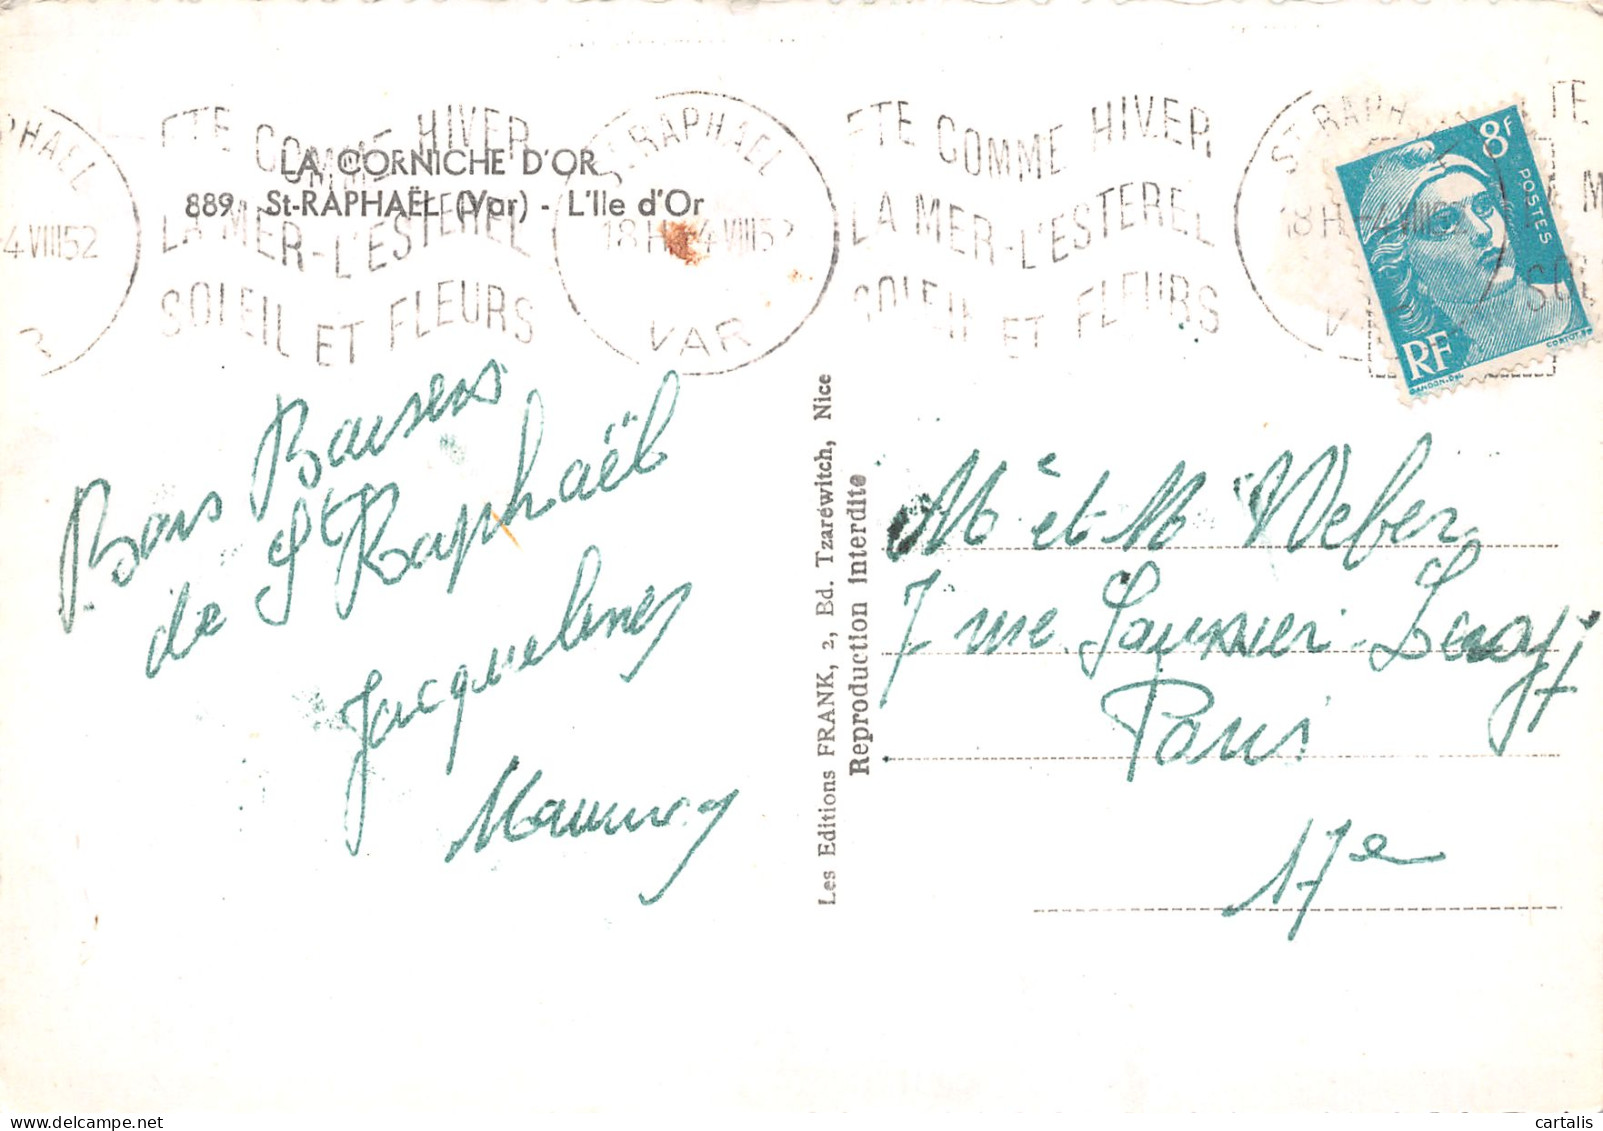 LA CORNICHE D'OR
889 St-RAPHAËL (Var) - L'Ile d'Or
PHAEL
4 VIII 52
ETE COMME HIVER
LA MER-L'ESTEREL
SOLEIL ET FLEURS
ST RAPHAEL
18H -4 VIII 52
VAR
ETE COMME HIVER
LA MER-L'ESTEREL
SOLEIL ET FLEURS
ST RAPH
18H -4 VIII 52
8F
POSTES
RF
GANDON-Del
CORTOT.SC
Bons Baisers
de St Raphaël
Jacqueline
Les Editions FRANK, 2, Bd. Tzaréwitch, Nice
Reproduction interdite
M et M Weber
7 rue Saussier-Leroy
Paris
17e
cartalis